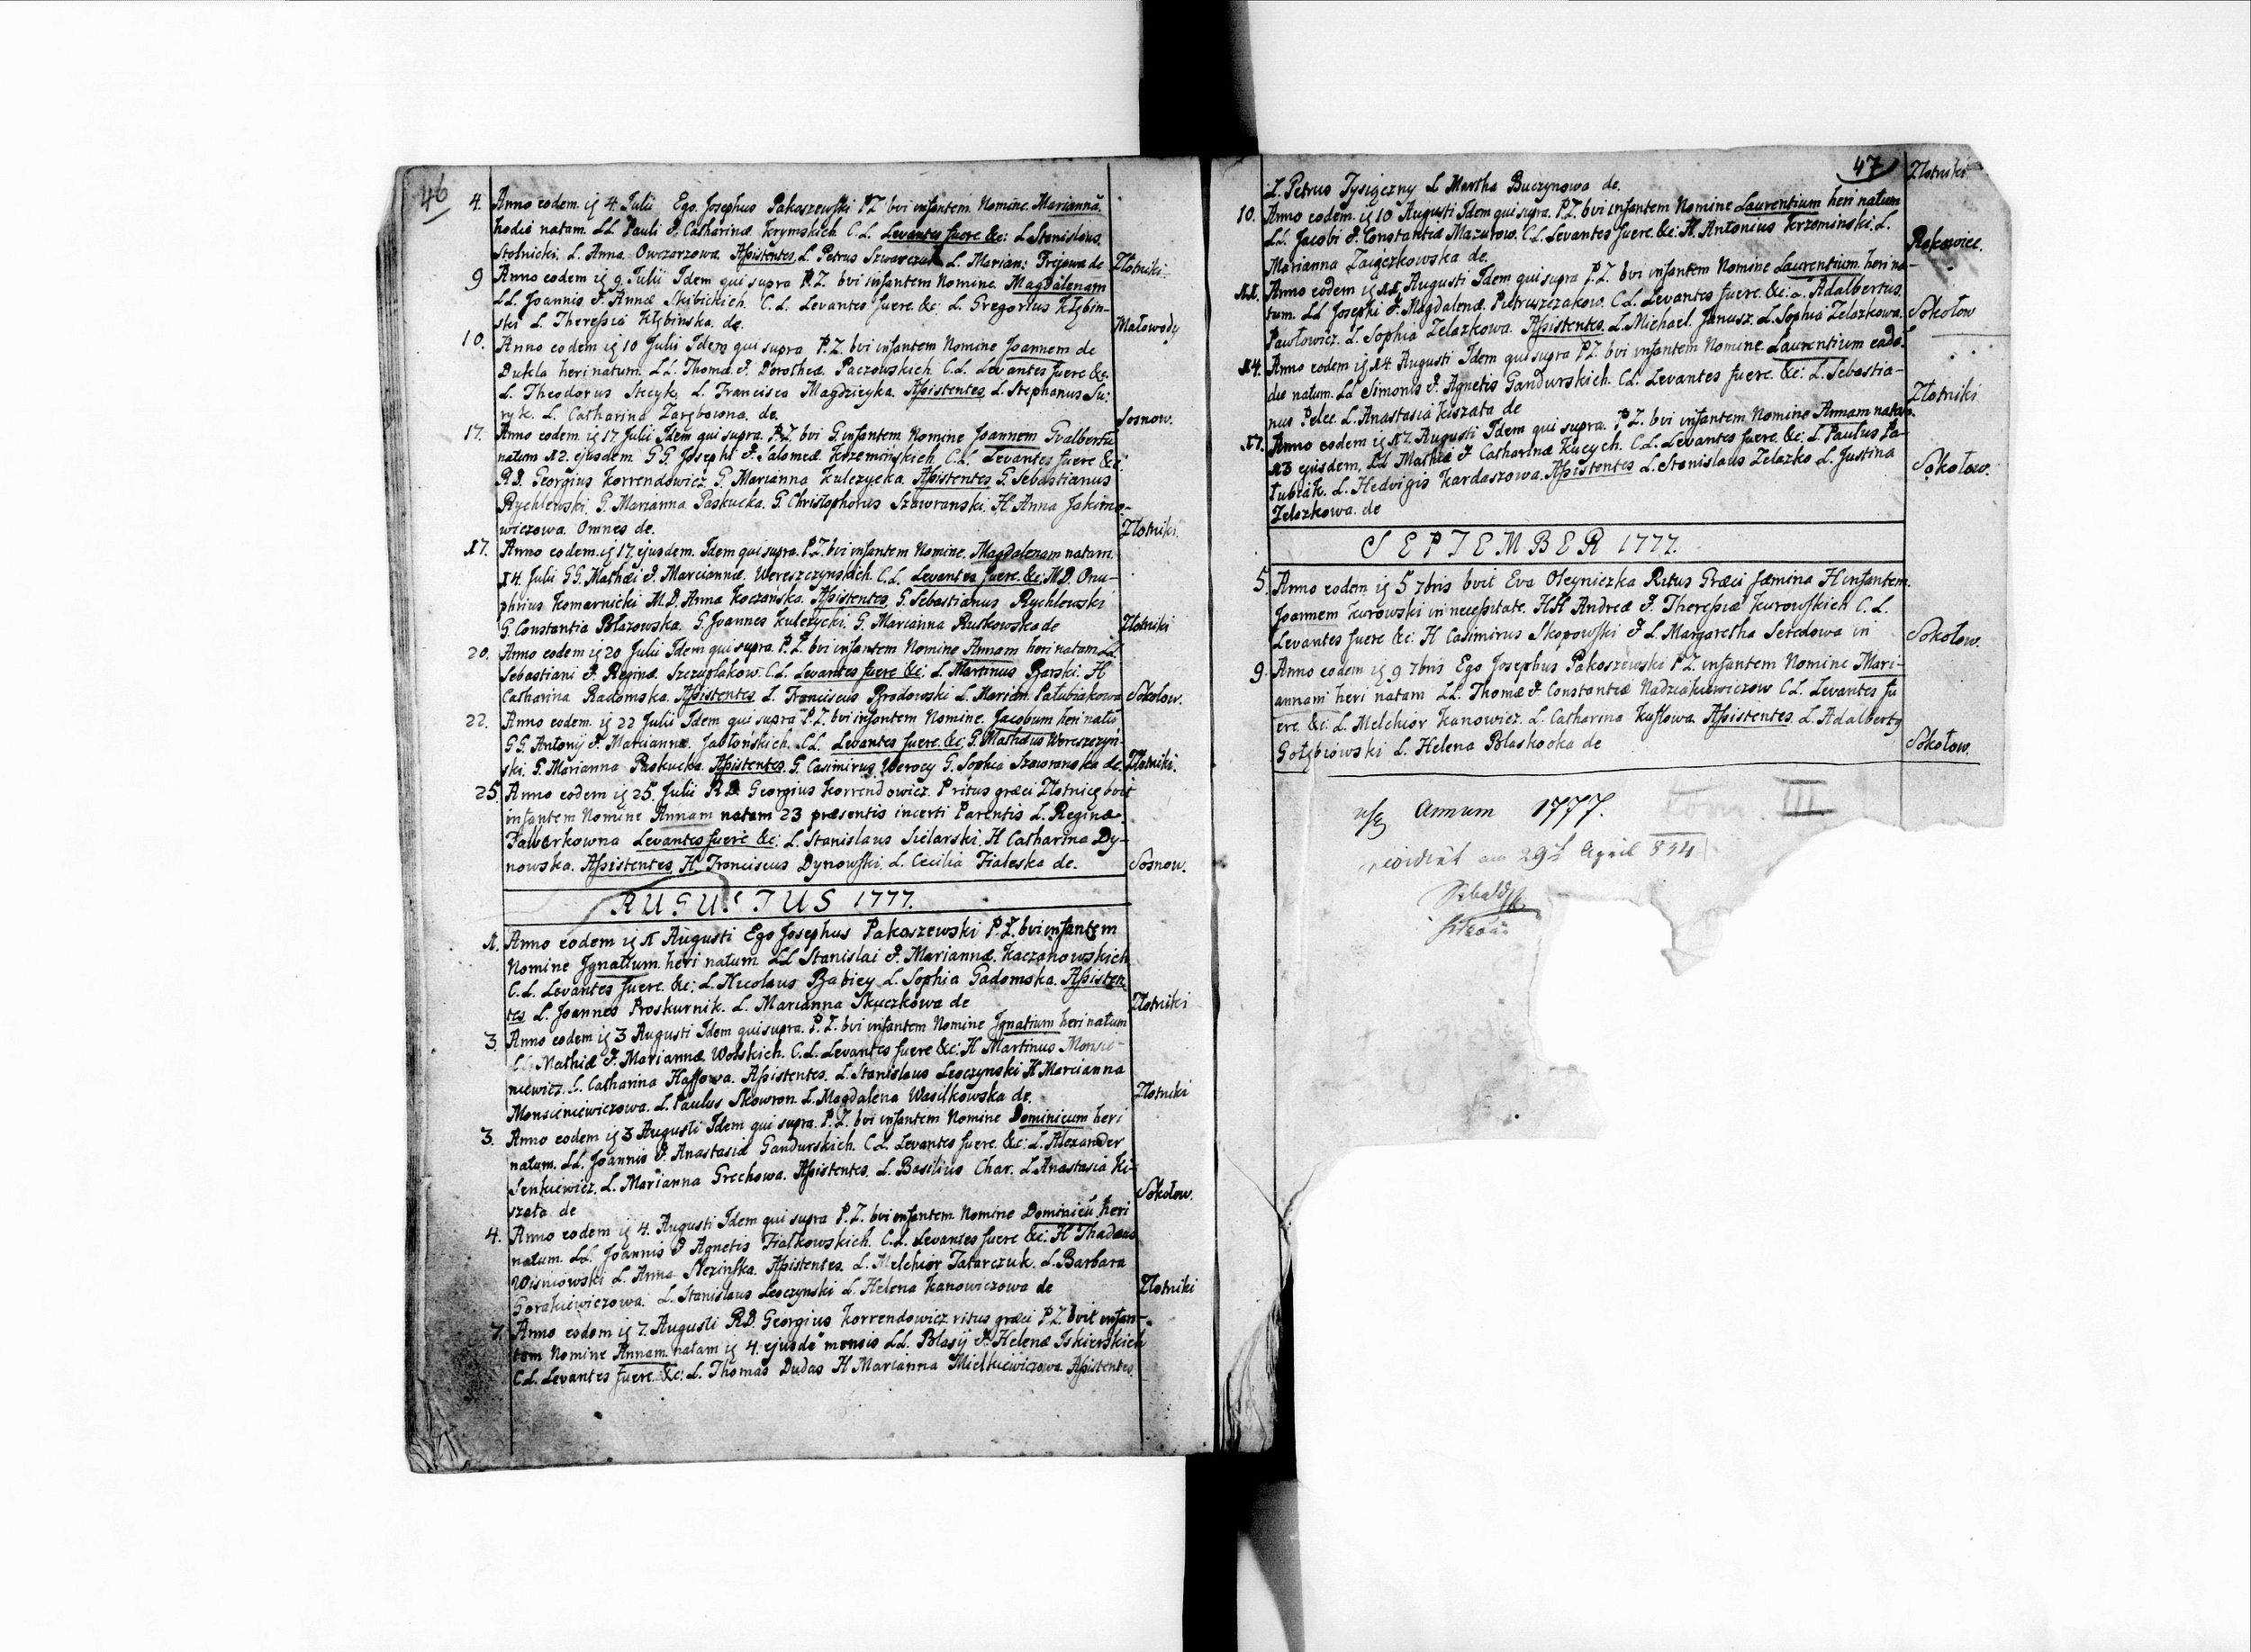 46
4. Anno eodem ig 4 Julii Ego Josephus Pakoszewski P.Z. bvi infantem Nomine Mariannā
hodie natam. LL. Pauli & Catharinæ Krymskich C.L. Levantes fuere &c: L. Stanislaus
Stolnicki. L. Anna Owczarzowa. Assistentes L. Petrus Szwarczuk L. Marian: Prejowa de Złotniki
9 Anno eodem ig 9. Julii Idem qui supra P.Z. bvi infantem Nomine Magdalenam
LL. Joannis & Annæ Skibickich. C.L. Levantes fuere &c: L. Gregorius Kłębin-
ski L. Theressia Kłębinska. de. Małowody
10. Anno eodem ig 10 Julii Idem qui supra P.Z. bvi infantem Nomine Joannem de
Dukla heri natum. LL. Thomæ & Dorotheæ Paczowskich. C.L. Levantes fuere &c.
L. Theodorus Stecyk, L. Francisca Magdzieyka. Assistentes L. Stephanus Su:
ryk. L. Catharina Zarębowna. de. Sosnow.
17. Anno eodem ig 17. Julii Idem qui supra. P.Z. bvi G. infantem Nomine Joannem Gvalbertū
natum 12. ejusdem GG. Josephi & Salomeæ Krzeminskich C.L. Levantes fuere &c:
R.D. Georgius Korrendowicz. G. Marianna Kulczycka. Assistentes G. Sebastianus
Rychlewski. G. Marianna Paskucka. G. Christophorus Szaworanski. H. Anna Jakimo-
wiczowa. Omnes de. Złotniki.
17. Anno eodem ig 17 ejusdem. Idem qui supra. P.Z. bvi infantem Nomine. Magdalenam natam.
14. Julii GG. Mathæi & Mariannæ. Wereszczynskich. C.L. Levantes fuere. &c: M.D. Onu-
phrius Komarnicki M.D. Anna Koczanska. Assistentes G. Sebastianus Rychlewski
G. Constantia Błazowska. G. Joannes Kulczycki. G. Marianna Rutkowska de Złotniki
20. Anno eodem ig 20 Julii Idem qui supra. P.Z. bvi infantem Nomine Annam heri natam LL.
Sebastiani & Reginæ Szczupłakow. C.L. Levantes fuere &c: L. Martinus Barski. H
Catharina Radomska. Assistentes L. Franciscus Brodowski L. Marian. Pałubiakowa Sokołow.
22. Anno eodem. ig 22 Julii Idem qui supra P.Z. bvi infantem Nomine. Jacobum heri natū
GG. Antonij & Mariannæ. Jabłońskich. LL. Levantes fuere. &c: G. Mathæus Wereszczyn
ski. G. Marianna Paskucka. Assistentes G. Casimirus Werocy G. Sophia Szaworanska de. Złotniki.
25 Anno eodem ig 25. Julii R.D. Georgius Korrendowicz. P. ritus græci Złotnicg bvit
infantem Nomine Annam natam 23 præsentis incerti Parentis L. Reginæ.
Falwerkowna Levantes fuere &c: L. Stanislaus Sielarski. H Catharina Dy-
nowska. Assistentes H. Franciscus Dynowski. L. Cecilia Fialeska de. Sosnow.
AUGUSTUS 1777.
1. Anno eodem ig 1 Augusti Ego Josephus Pakoszewski P.Z. bvi infantem
Nomine Ignatium heri natum LL Stanislai & Mariannæ. Kaczanowskich
C.L. Levantes fuere. &c: L. Nicolaus Babiey L. Sophia Gadomska. Assisten
tes L. Joannes Proskurnik. L. Marianna Skuczkowa de Złotniki
3. Anno eodem ig 3 Augusti Idem qui supra. P.Z. bvi infantem Nomine Ignatium heri natum
LL. Mathiæ & Mariannæ Wolskich. C.L. Levantes fuere &c: H Martinus Monsie
niewicz. L. Catharina Hassowa. Assistentes. L. Stanislaus Leoczynski H Marcianna
Monsieniewiczowa. L. Paulus Skowron. L. Magdalena Wasilkowska de. Złotniki
3. Anno eodem ig 3 Augusti Idem qui supra. P.Z. bvi infantem Nomine Dominicum heri
natum. LL. Joannis & Anastasiæ Gandurskich. C.L. Levantes fuere. &c: L. Alexander
Senkiewicz. L. Marianna Grechowa. Assistentes. L. Basilius Char. L. Anastasia Ki-
szata de Sokołow.
4. Anno eodem ig 4. Augusti Idem qui supra P.Z. bvi infantem Nomine Dominicū heri
natum. LL. Joannis & Agnetis Fiałkowskich. C.L. Levantes fuere &c: H Thadæus
Wisniowski L. Anna Slezinska. Assistentes. L. Melchior Tatarczuk. L. Barbara
Gorakiewiczowa. L. Stanislaus Leoczynski L. Helena Kanowiczowa de Złotniki
7. Anno eodem ig 7. Augusti R.D. Georgius Korrendowicz ritus græci P.Z. bvit infan-
tem Nomine Annam. natam ig 4. ejusdē mensis LL. Blasij & Helenæ Iskierskich
C.L. Levantes fuere. &c: L. Thomas Dudas H Marianna Mielkiewiczowa. Assistentes.
47
L. Petrus Tysięczny L Martha Buczynowa de. Złotniki
10. Anno eodem. ig 10 Augusti Idem qui supra. P.Z. bvi infantem Nomine Laurentium heri natum
LL. Jacobi & Constantiæ Mazurow. C.L. Levantes fuere. &c: H. Antonius Krzeminski. L.
Marianna Zaięczkowska de. Rakowiec.
11. Anno eodem ig 11. Augusti Idem qui supra P.Z. bvi infantem Nomine Laurentium. heri na-
tum. LL Josephi & Magdalenæ. Pietruszczakow. C.L. Levantes fuere. &c: L. Adalbertus.
Pawłowicz. L. Sophia Zelazkowa. Assistentes. L. Michael. Janusz. L. Sophia Zelazkowa. Sokołow
14. Anno eodem ig 14 Augusti Idem qui supra P.Z. bvi infantem Nomine. Laurentium eadē.
die natum. LL Simonis & Agnetis Gandurskich. C.L. Levantes fuere. &c: L. Sebastia-
nus Pelec. L. Anastasia Kiszata de Złotniki
17. Anno eodem ig 17. Augusti Idem qui supra. P.Z. bvi infantem Nomine Annam natam.
13 ejusdem, LL Mathiæ & Catharinæ Kucych. C.L. Levantes fuere. &c: L. Paulus Pa-
łubiak. L. Hedvigis Kardaszowa. Assistentes L. Stanislaus Zelazko L. Justina
Zelazkowa. de Sokołow.
SEPTEMBER 1777.
5. Anno eodem ig 5 7bris bvit Eva Oleyniczka Ritus Græci Fæmina H infantem.
Joannem Kurowski in necessitate. HH Andreæ & Theressiæ Kurowskich C.L.
Levantes fuere &c: H Casimirus Skopowski & L. Margaretha Seredowa in Sokołow.
9. Anno eodem ig 9 7bris Ego Josephus Pakoszewski P.Z. infantem Nomine Mari-
annam heri natam LL. Thomæ & Constantiæ Nadziakiewiczow C.L. Levantes fu
ere &c: L. Melchior Kanowicz. L. Catharina Kusłowa. Assistentes L. Adalberty
Gołębiowski L. Helena Blaskocka de Sokołow.
usq Annum 1777. Tom. III
revidirt am 29t April 834